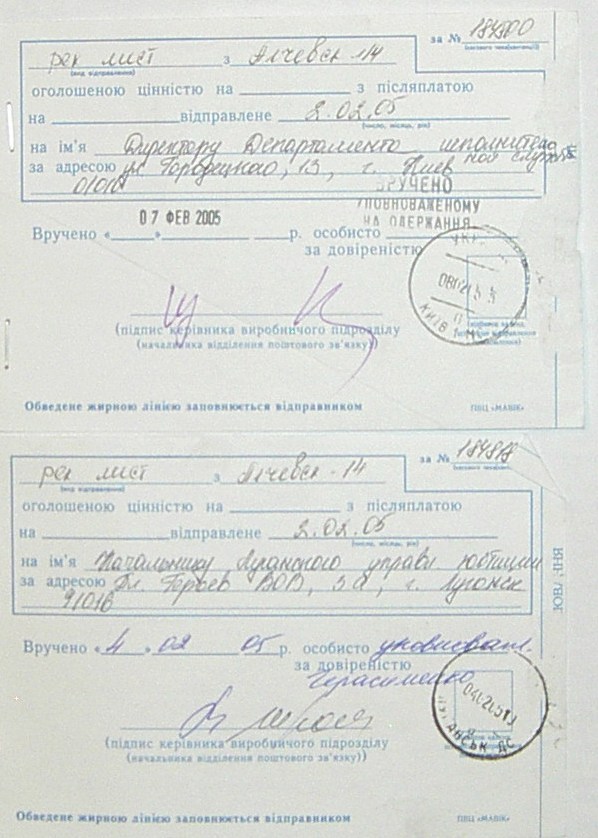 за № 184800
рек лист з Алчевск-14
(вид відправлення)
оголошеною цінністю на з післяплатою
на відправлене 2.02.05
(число, місяць, рік)
на ім'я Директору Департамента исполнительной службы
за адресою ул. Городецкого, 13, г. Киев
01001
ВРУЧЕНО
УПОВНОВАЖЕНОМУ
НА ОДЕРЖАННЯ
07 ФЕВ 2005
Вручено « » р. особисто
за довіреністю
УКР
КИЇВ
(підпис керівника виробничого підрозділу
(начальника відділення поштового зв'язку))
Обведене жирною лінією заповнюється відправником
ПВЦ «МАВІК»
за № 184818
рек лист з Алчевск-14
(вид відправлення)
оголошеною цінністю на з післяплатою
на відправлене 2.02.05
(число, місяць, рік)
на ім'я Начальнику Луганского управл юстиции
за адресою Пл. Героев ВОВ, 3а, г. Луганск
91016
Вручено «4» 02 05 р. особисто
за довіреністю
Герасименко
(підпис керівника виробничого підрозділу
(начальника відділення поштового зв'язку))
Обведене жирною лінією заповнюється відправником
ПВЦ «МАВІК»